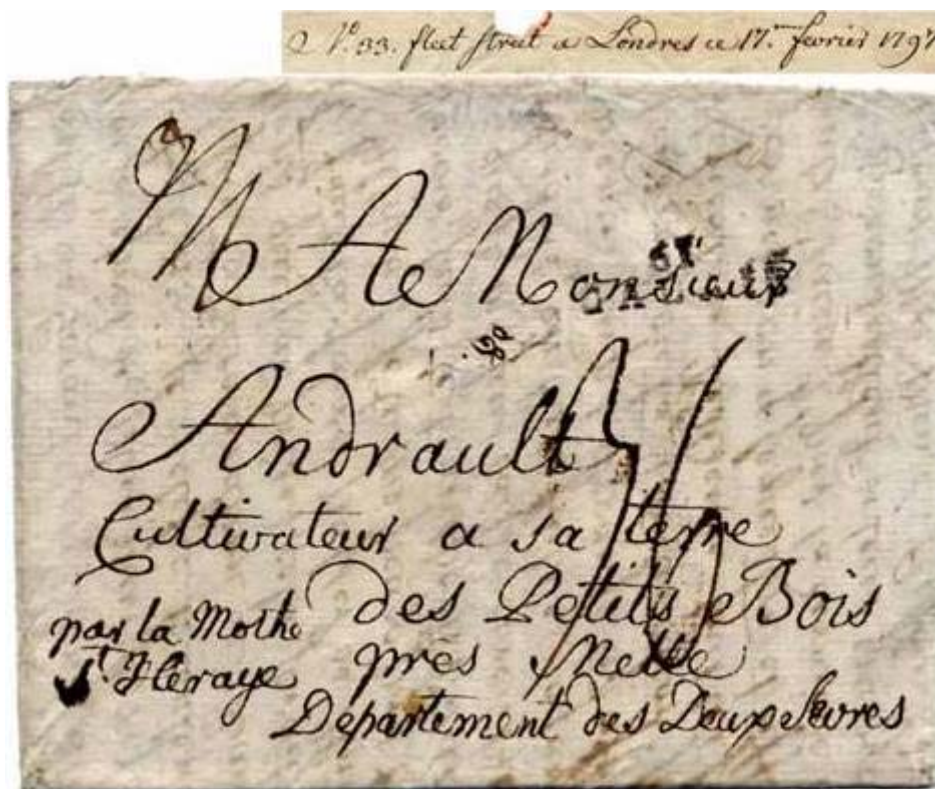 N.o 33. fleet street a Londres ce 17.me fevrier 1797
A Monsieur
Andrault
Cultivateur a sa terre
des Petits Bois
par la Mothe
St. Heraye
près Melle
Département des Deux Sevres